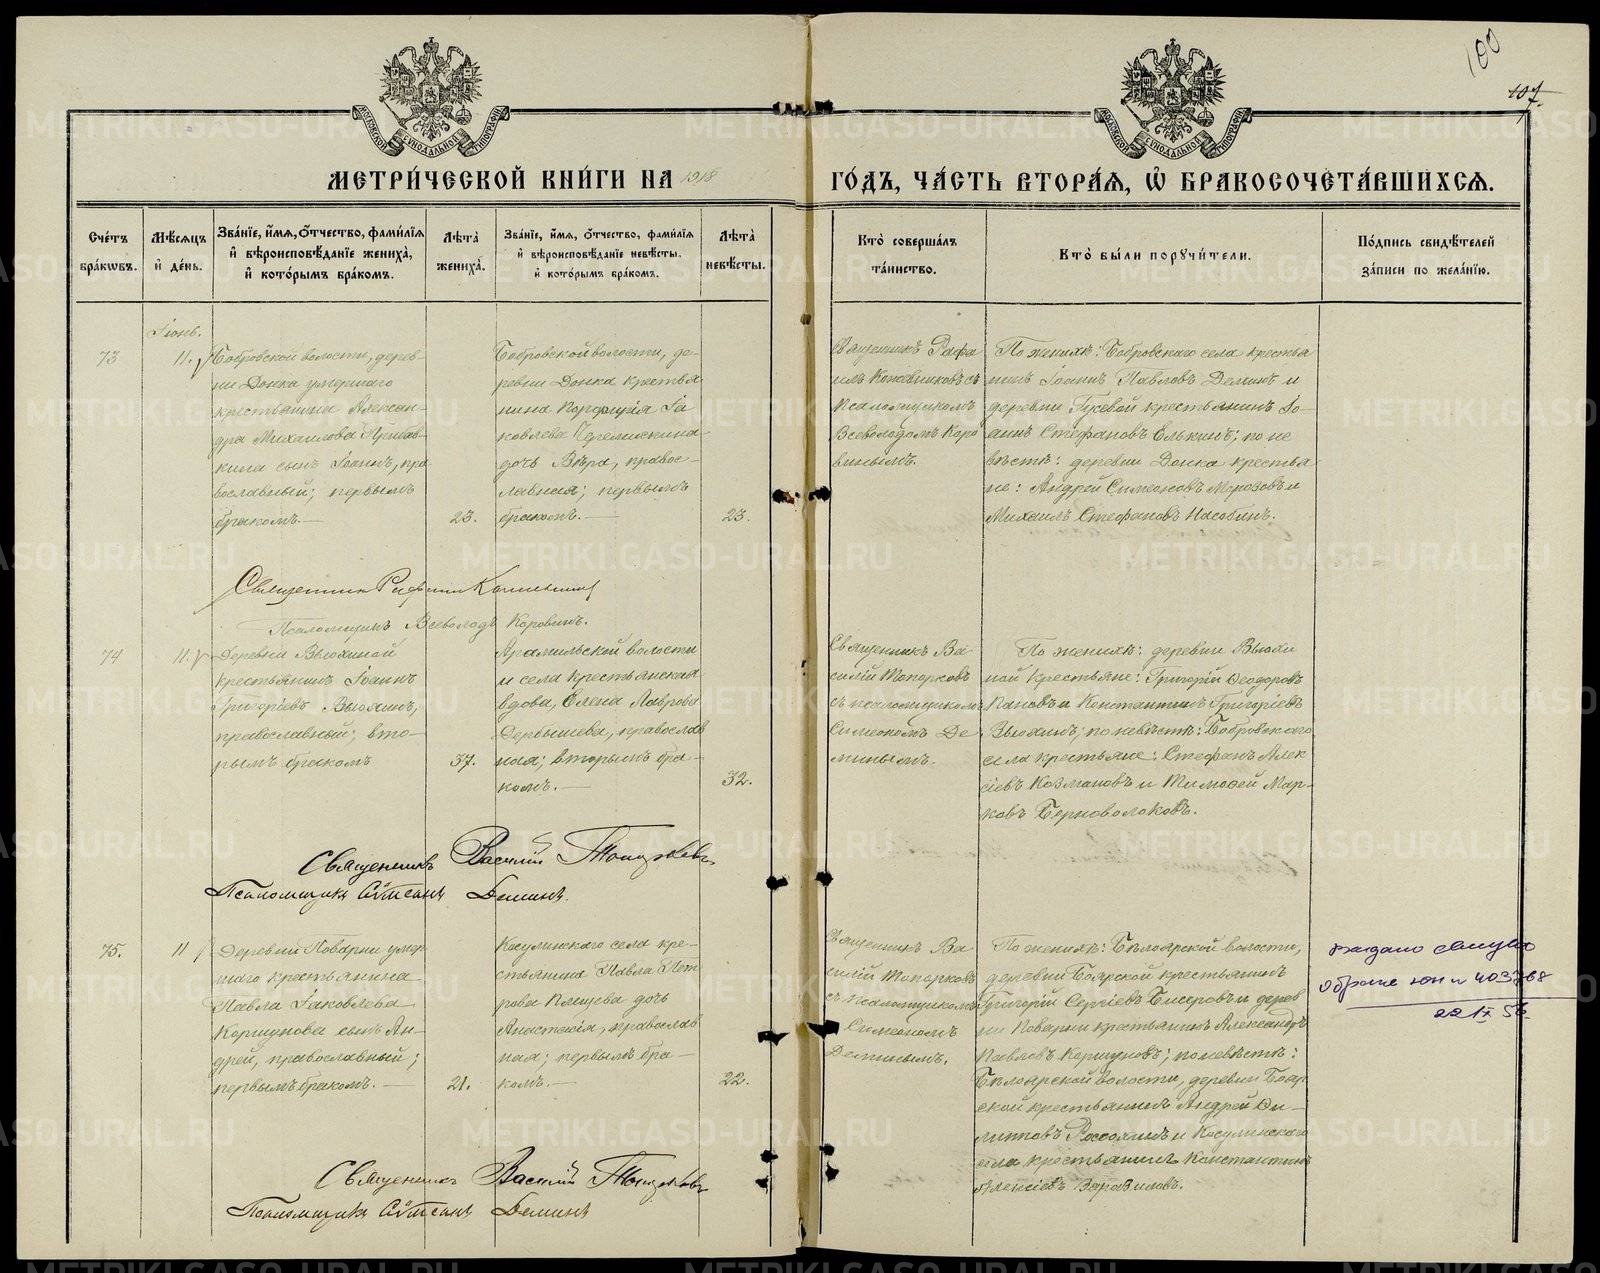 100
107.
МОСКОВСКОЙ СѴНОДАЛЬНОЙ ТИПОГРАФІИ
МОСКОВСКОЙ СѴНОДАЛЬНОЙ ТИПОГРАФІИ
МЕТРИ́ЧЕСКОЙ КНИ́ГИ НА 1918
ГО́ДЪ, ЧА́СТЬ ВТОРА́Я, Ѽ БРАКОСОЧЕТА́ВШИХСЯ.
Сче́тъ бра́кѡвъ.
Мѣ́сяцъ и҆ де́нь.
Зва́нїе, и҆́мя, ѻ҆́тчество, фами́лїя
и҆ вѣроисповѣ́данїе жениха̀,
и҆ кото́рымъ бра́комъ.
Лѣ́та̀ жениха̀.
Зва́нїе, и҆́мя, ѻ҆́тчество, фами́лїя
и҆ вѣроисповѣ́данїе невѣ́сты.
и҆ кото́рымъ бра́комъ.
Лѣ́та̀ невѣ́сты.
Кто̀ соверша́лъ
та́инство.
Кто̀ бы́ли порꙋчи́тели.
По́дпись свидѣ́телей
за́писи по жела́нїю.
Іюнь.
73
11.
Бобровской волости, дерев-
ни Донка умершаго
крестьянина Алексан-
дра Михаилова
кина сынъ Іоаннъ, пра
вославный; первымъ
бракомъ.—
23.
Бобровской волости, де-
ревни Донка крестья
нина Порфирія Іа
ковлева
дочь Вѣра, правос-
лавная; первымъ
бракомъ.—
23.
Священникъ Рафа
илъ Кожевниковъ съ
псаломщикомъ
Всеволодомъ Коро
винымъ.
По женихѣ: Бобровскаго села кресть
нинъ Іоаннъ Павловъ Деминъ и
деревни Гусевой крестьянинъ Іо-
аннъ Стефановъ Елькинъ; по не
вѣстѣ: деревни Донка крестья
не: Андрей Симеоновъ Морозовъ и
Михаилъ Стефановъ
Священник Рафаил
Псаломщикъ Всеволодъ Коровинъ.
74
11.
Деревни Вьюхиной
крестьянинъ Іоаннъ
Григоріевъ Вьюхинъ,
православный; вто-
рымъ бракомъ
37.
Арамильской волости
и села крестьянская
вдова, Елена Лаврова
Дербышева, православ
ная; вторымъ бра-
комъ.—
32.
Священникъ Ва-
силій Топорковъ
съ псаломщикомъ
Симеономъ Де
минымъ.
По женихѣ: деревни Вьюхи
ной крестьяне: Григорій Ѳеодоровъ
Пановъ и Константинъ Григоріевъ
Вьюхинъ; по невѣстѣ: Бобровскаго
села крестьяне: Стефанъ Алек
сіевъ Козмановъ и Тимоѳей Мар-
ковъ Черноволоковъ.
Священникъ Василій Топорковъ
Псаломщикъ Сѵмеонъ Деминъ.
75.
11
Деревни Поварни умер
шаго крестьянина
Павла Іаковлева
Коршунова сынъ Ан-
дрей, православный;
первымъ бракомъ.—
21.
Косулинскаго села кре-
стьянина Павла Пет
рова Плещева дочь
Анастасія, православ
ная; первымъ бра-
комъ.—
22.
Священникъ Ва
силій Топорковъ
съ псаломщикомъ
Симеономъ
Деминымъ.
По женихѣ: Бѣлоярской волости,
деревни Боярской крестьянинъ
Григорій Сергіевъ Бисеровъ и дерев
ни Поварни крестьянинъ Александръ
Павловъ Коршуновъ; по невѣстѣ:
Бѣлоярской волости, деревни Бояр
ской крестьянинъ Андрей Фи-
липповъ и Косулинскаго
села крестьянинъ Константинъ
Алексіевъ
Выдано свид-во
о браке ЮН № 403768
22 IX 56.
Священникъ Василій Топорковъ
Псаломщикъ Сѵмеонъ Деминъ
METRIKI.GASO-URAL.RU